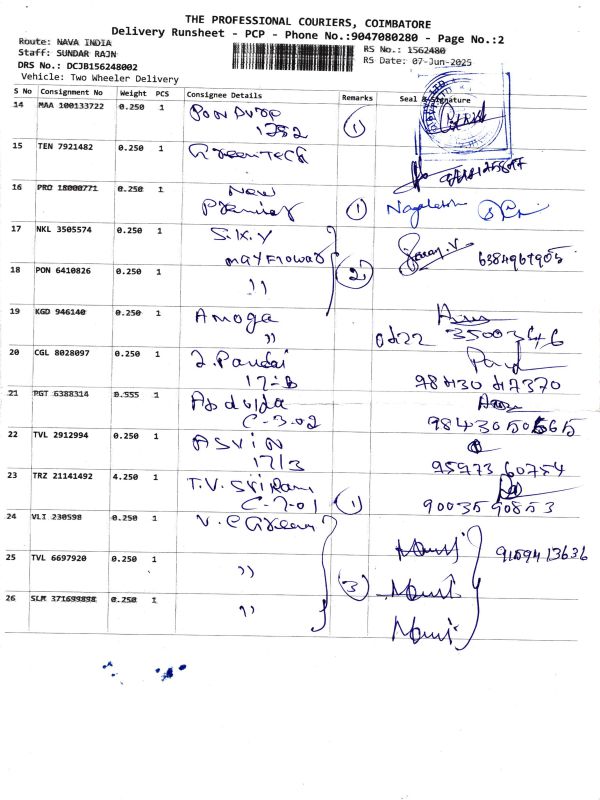 THE PROFESSIONAL COURIERS, COIMBATORE
Delivery Runsheet - PCP - Phone No.:9047080280 - Page No.:2
Route: NAVA INDIA
Staff: SUNDAR RAJN
DRS No.: DCJB156248002
Vehicle: Two Wheeler Delivery
RS No.: 1562480
RS Date: 07-Jun-2025
S No Consignment No Weight PCS Consignee Details Remarks Seal & Signature
14 MAA 100133722 0.250 1 1
1252
15 TEN 7921482 0.250 1 GreenTech
16 PRO 18000771 0.250 1 New 1
Premier
17 NKL 3505574 0.250 1 S.K.Y 6384967905
mayFlowar 2
18 PON 6410826 0.250 1 ))
19 KGD 946140 0.250 1 Amoga
)) 0422 3500346
20 CGL 8028097 0.250 1 J. Pandai
17-B 98430 47370
21 PGT 6388314 0.555 1 Abdulda
C-3-02
22 TVL 2912994 0.250 1 ASViN
17/3 95973 60754
23 TRZ 21141492 4.250 1 T.V. SriRam 1
C-7-01 9003590853
24 VLI 230598 0.250 1 V.C Green
9159413636
25 TVL 6697920 0.250 1 )) 3
26 SLM 371699898 0.250 1 ))